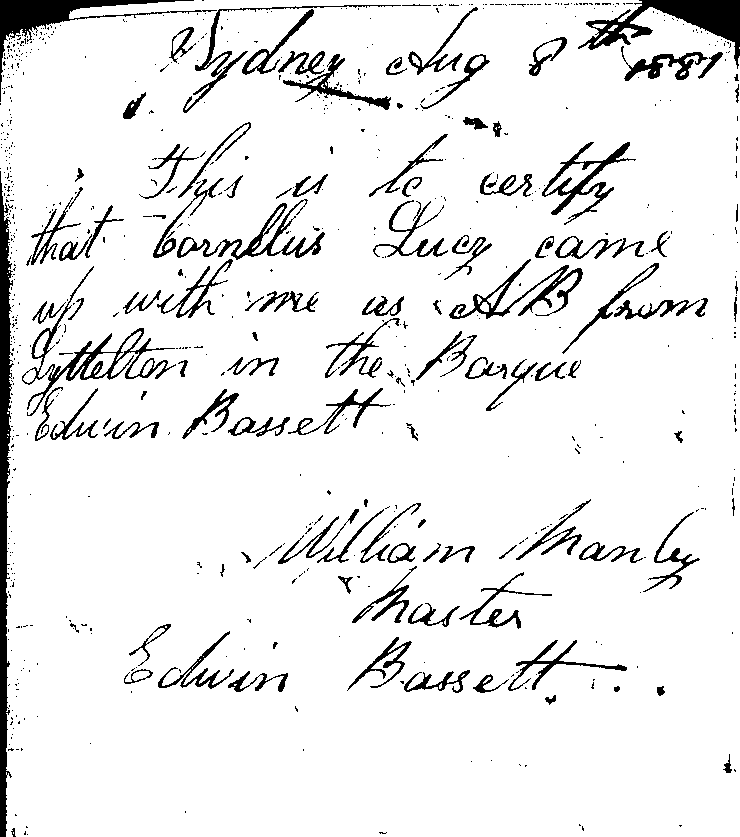 Sydney Aug 8th 1887
This is to certify
that Cornelius Lucy came
up with me as AB from
Lyttelton in the Barque
Edwin Bassett
William Manley
Master
Edwin Bassett